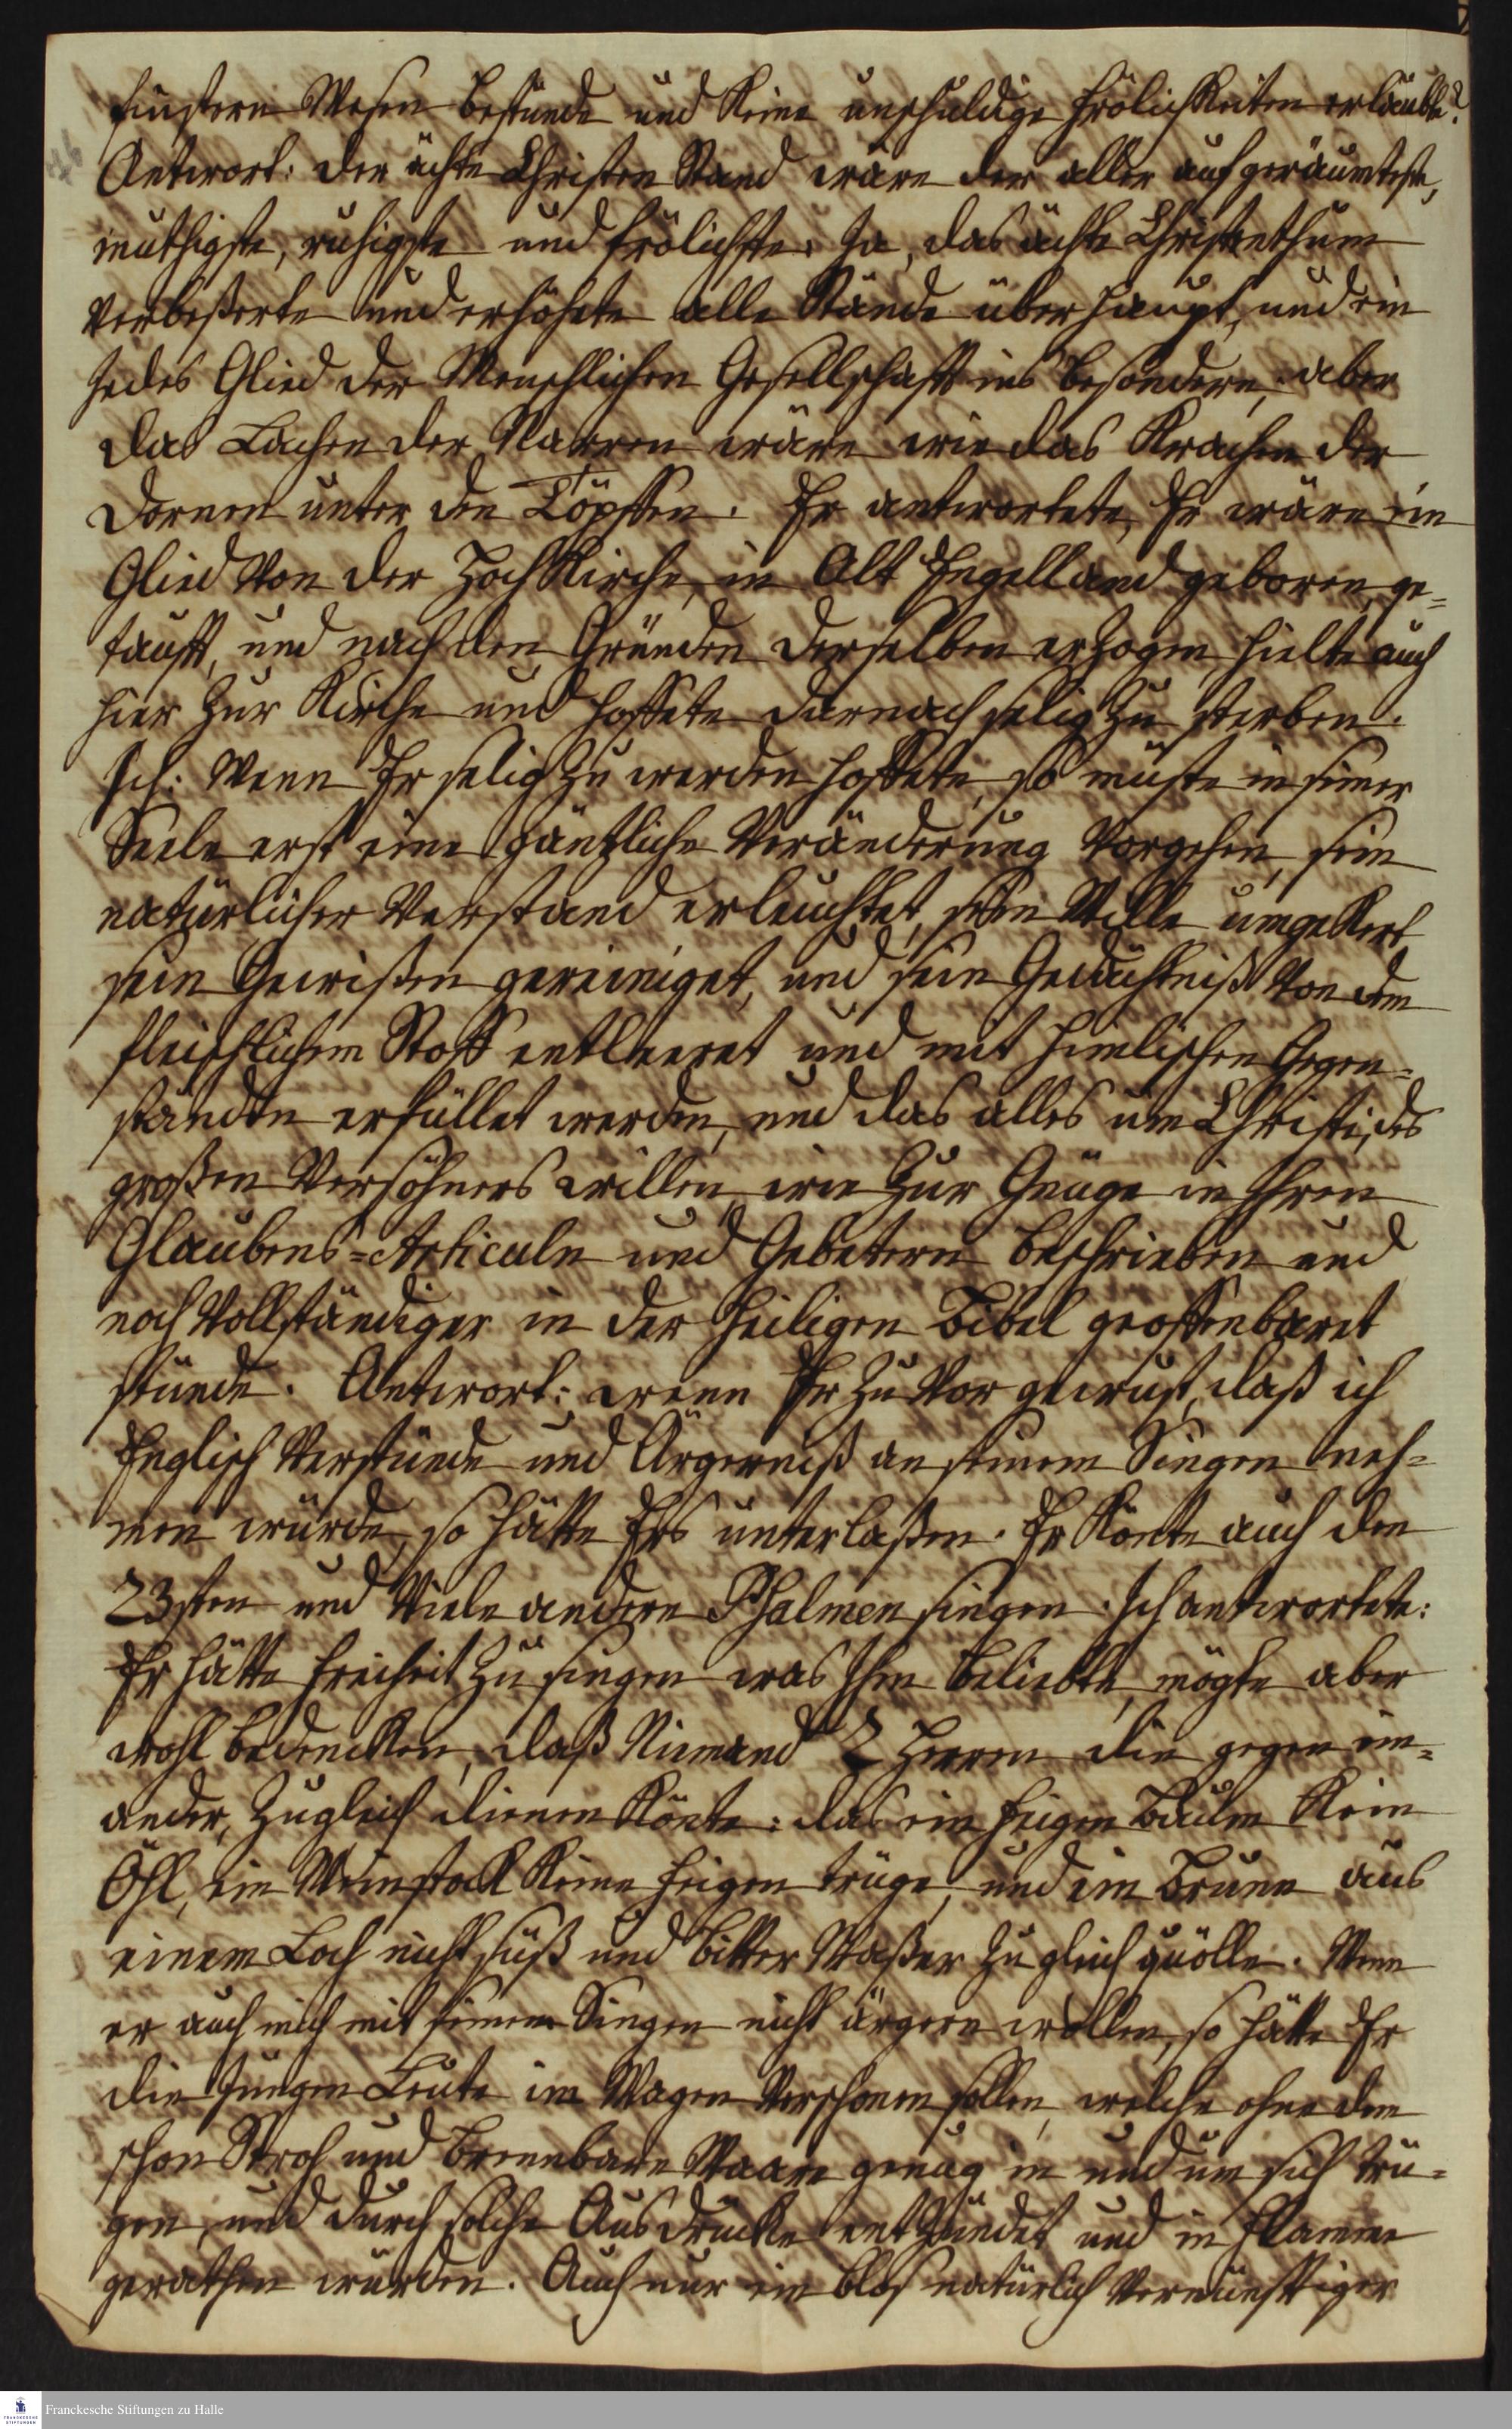 finstern Wesen bestünde und keine unschuldige Frölichkeiten erlaubte?
Antwort: der ächte Christen Stand wäre der aller aufgeräumteste,
muthigste, ruhigste und frölichste. Ja, das ächte Christenthum
verbeßerte und erhöhete alle Stände überhaupt, und ein
jedes Glied der Menschlichen Gesellschafft ins besondere, aber
das Lachen der Narren wäre wie das Krachen der
Dornen unter den Töpffen. Er antwortete, Er wäre ein
Glied von der HochKirche, in Alt Engelland geboren, ge=
taufft, und nach den Gründen derselben erzogen, hielte auch
hier zur Kirche und hoffete darnach selig zu sterben.
Ich: Wenn Er selig zu werden hoffete, so müste in seiner
Seele erst eine gäntzliche Veränderung vorgehen, sein
natürlicher Verstand erleuchtet, sein Wille umgekert,
sein Gewißen gereiniget, und sein Gedächtniß von dem
fleischlichen Stoff entleeret und mit himlischen Gegen=
ständen erfüllet werden, und das alles um Christi, des
großen Versöhners willen, wie zur Gnüge in Ihren
Glaubens=Articuln und Gebetern beschrieben und
noch vollständiger in der heiligen Bibel geoffenbaret
stünde. Antwort: wenn Er zuvor gewust, daß ich
Englisch verstünde und Ärgerniß an seinem Singen neh=
men würde, so hätte Ers unterlaßen. Er könte auch den
23sten und viele andere Psalmen singen. Ich antwortete:
Er hätte Freiheit zu singen was Ihm beliebte, mögte aber
wohl bedencken, daß Niemand 2 Herren die gegen ein=
ander, zugleich dienen könte: das ein Feigen Baum kein
Öhl, ein Weinstock keine Feigen trüge, und ein Brunn aus
einem Loch nicht süß und bitter Waßer zugleich quölle. Wenn
er auch mich mit seinem Singen nicht ärgern wollen, so hätte Er
die Jungen Leute im Wagen verschonen sollen, welche ohne dem
schon Stroh und brennbare Waare genug in und um sich trü=
gen, und durch solche Ausdrücke entzündet und in Flamme
gerathen würden. Auch nur ein blos natürlich vernünfftiger
Franckesche Stiftungen zu Halle